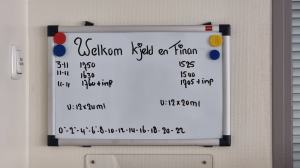 Welkom kjeld en Finan
3-11 1750 1525
11-11 1630 1540
1760 + imp 1705 + imp
U: 12x20ml U: 12x20ml
0-2-4-6-8-10-12-14-16-18-20-22